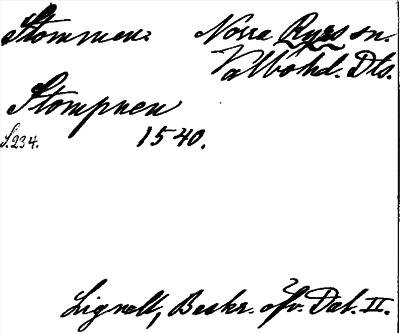 Stommen: Norra Ryrs sn.
Valbo hd. Dls.
Stompnen
S.234. 1540.
Lignell, Beskr. öfv. Dal. II.